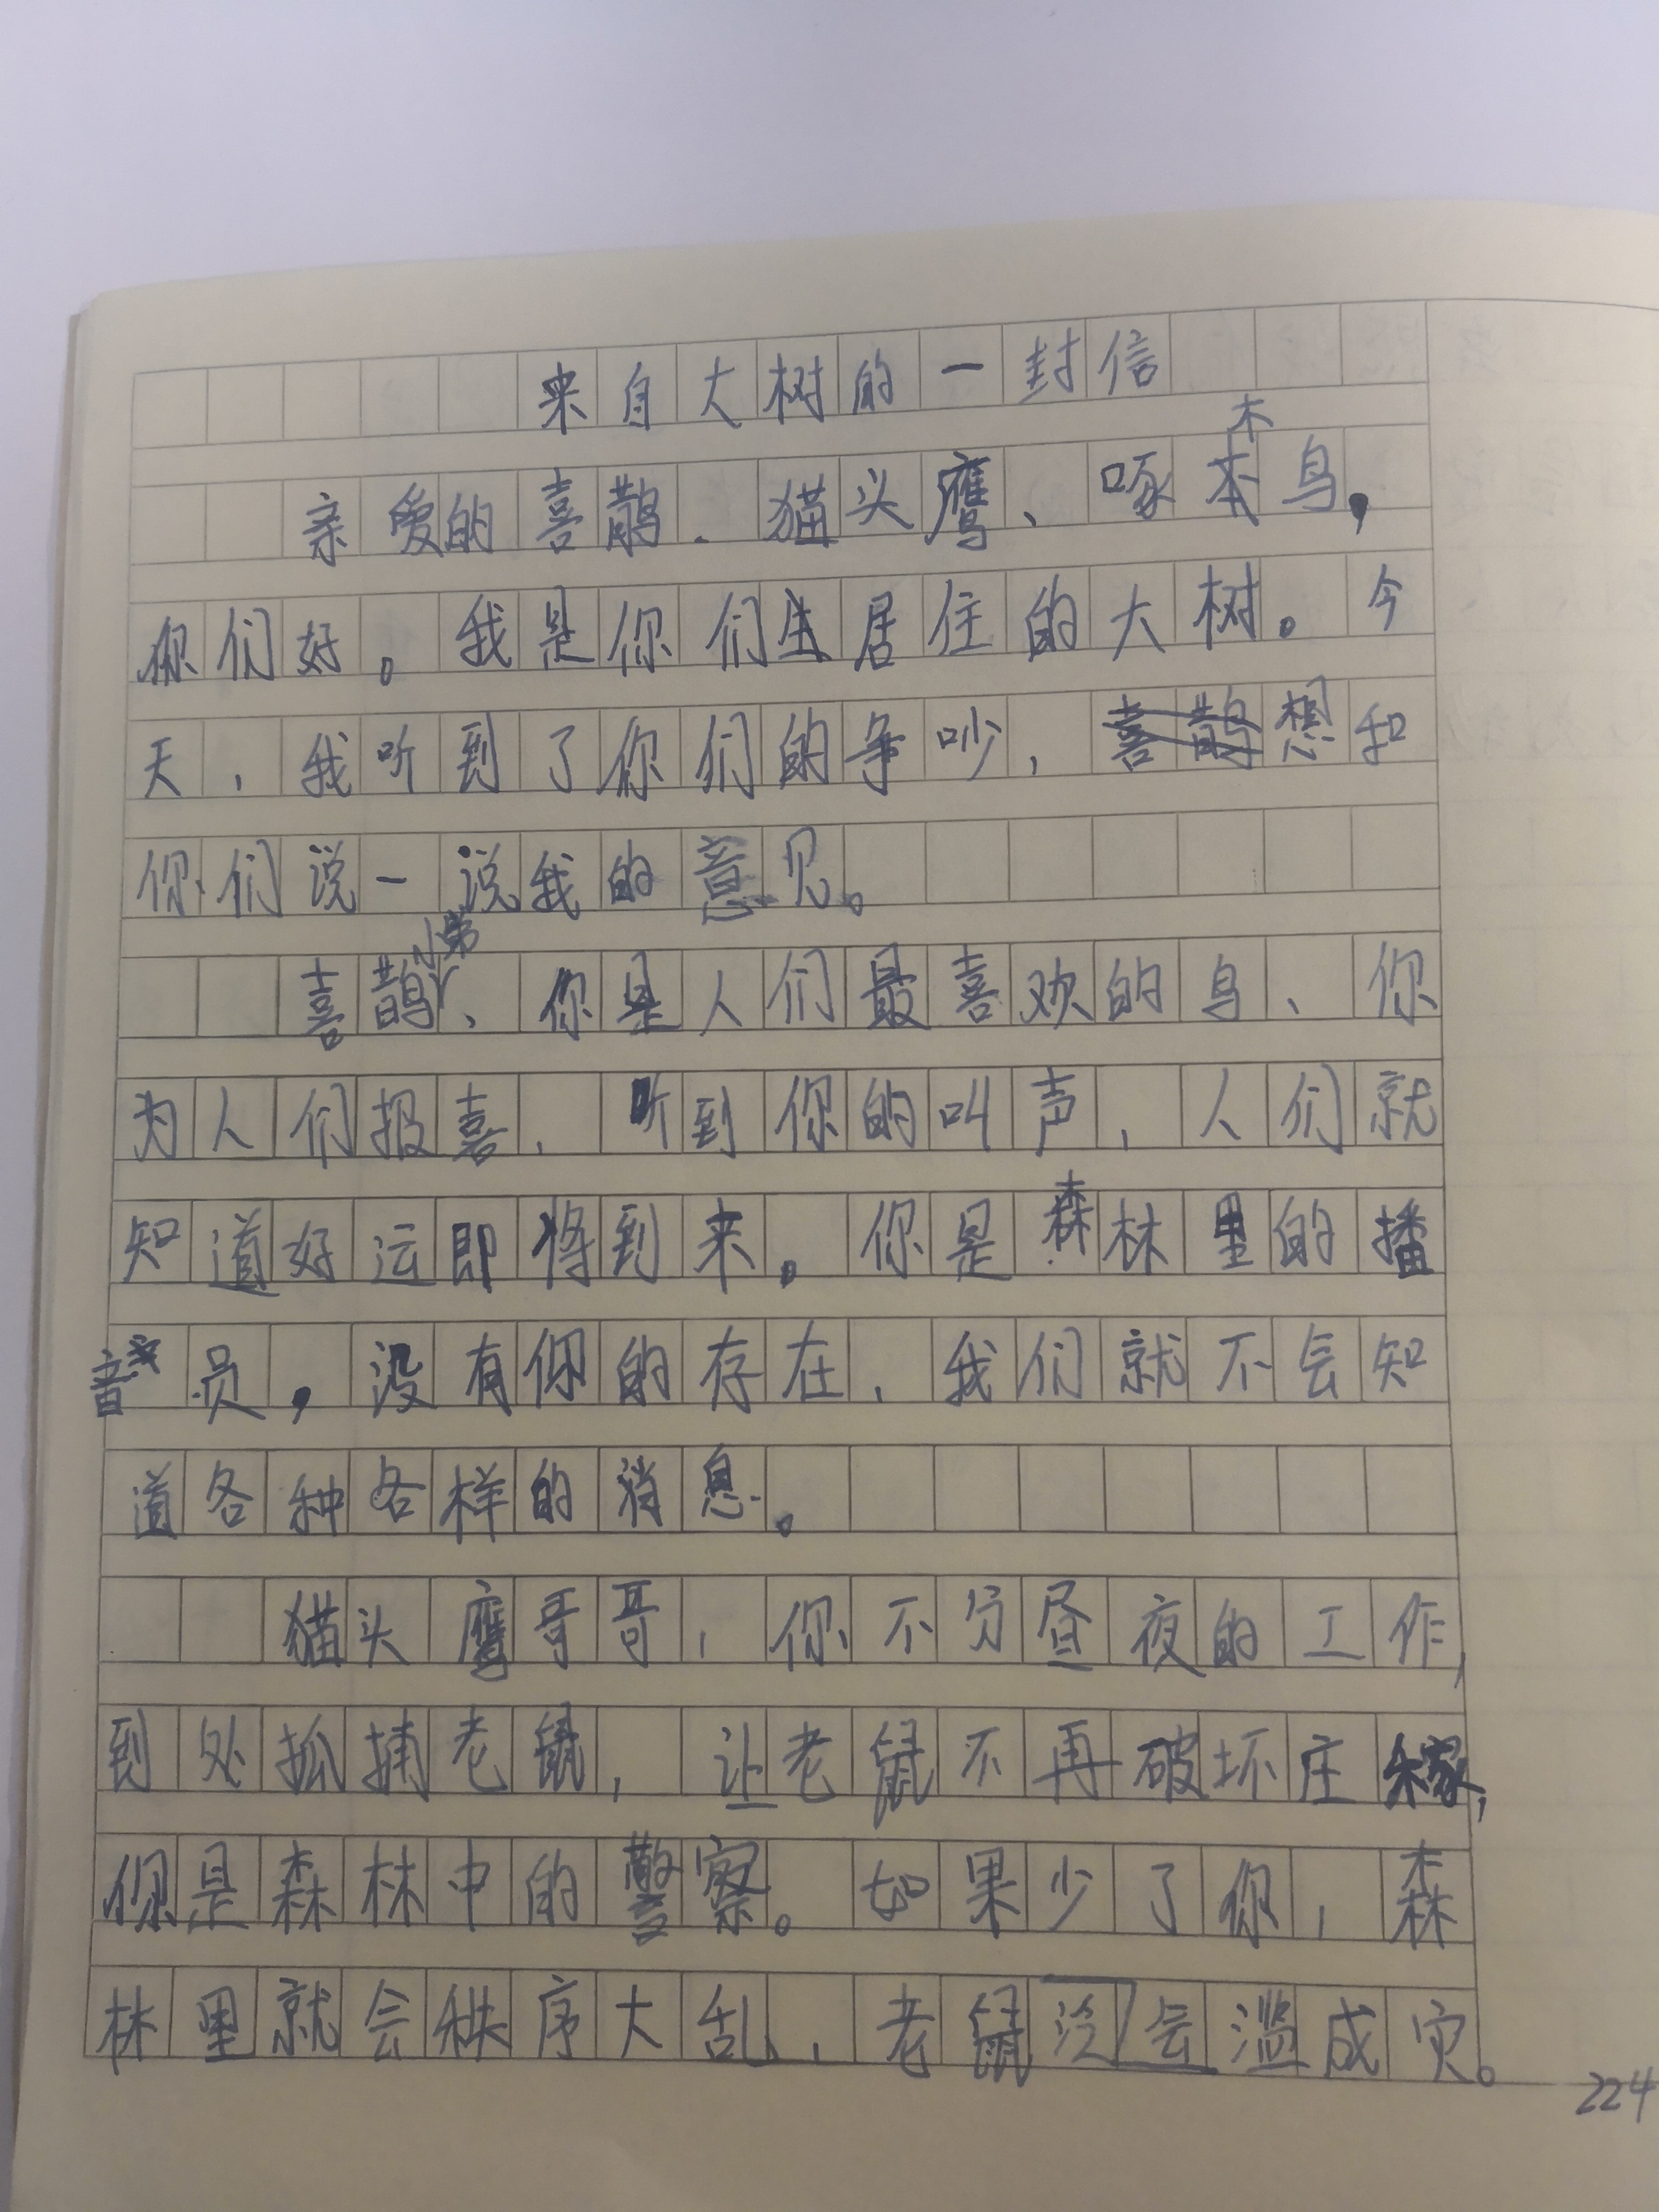 来自大树的一封信
亲爱的喜鹊、猫头鹰、啄木鸟,
你们好。我是你们生居住的大树。今
天,我听到了你们的争吵,想和
你们说一说我的意见。
喜鹊小弟、你是人们最喜欢的鸟、你
为人们报喜,听到你的叫声,人们就
知道好运即将到来。你是森林里的播
音员,没有你的存在,我们就不会知
道各种各样的消息。
猫头鹰哥哥,你不分昼夜的工作,
到处抓捕老鼠,让老鼠不再破坏庄稼,
你是森林中的警察。如果少了你,森
林里就会秩序大乱,老鼠会泛滥成灾。
224